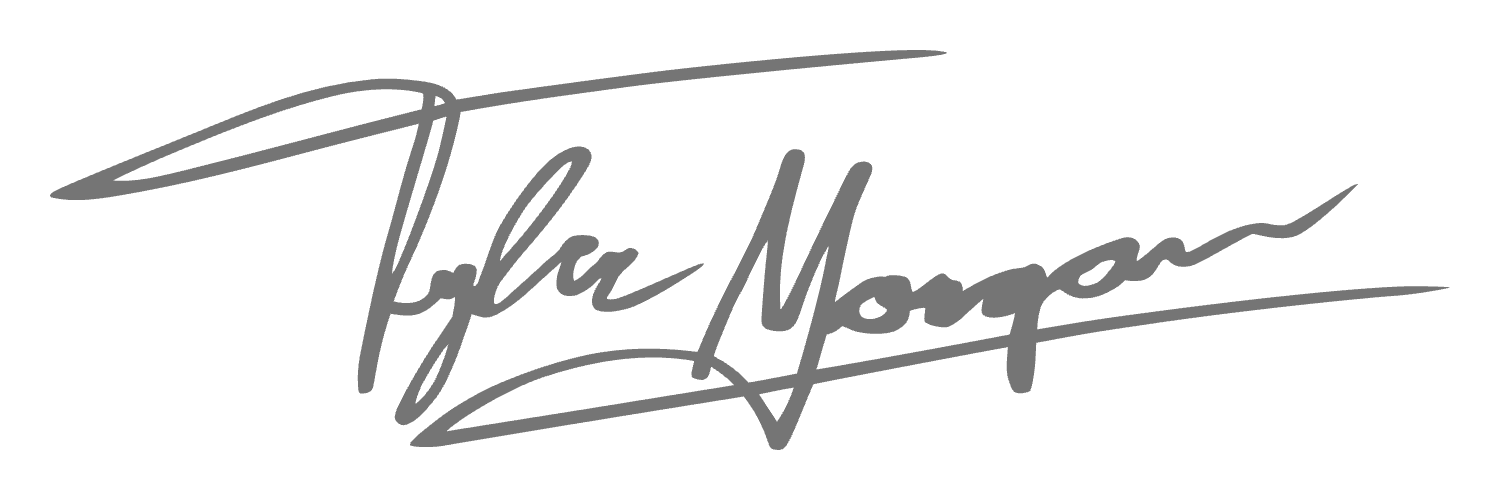 Tyler Morgan